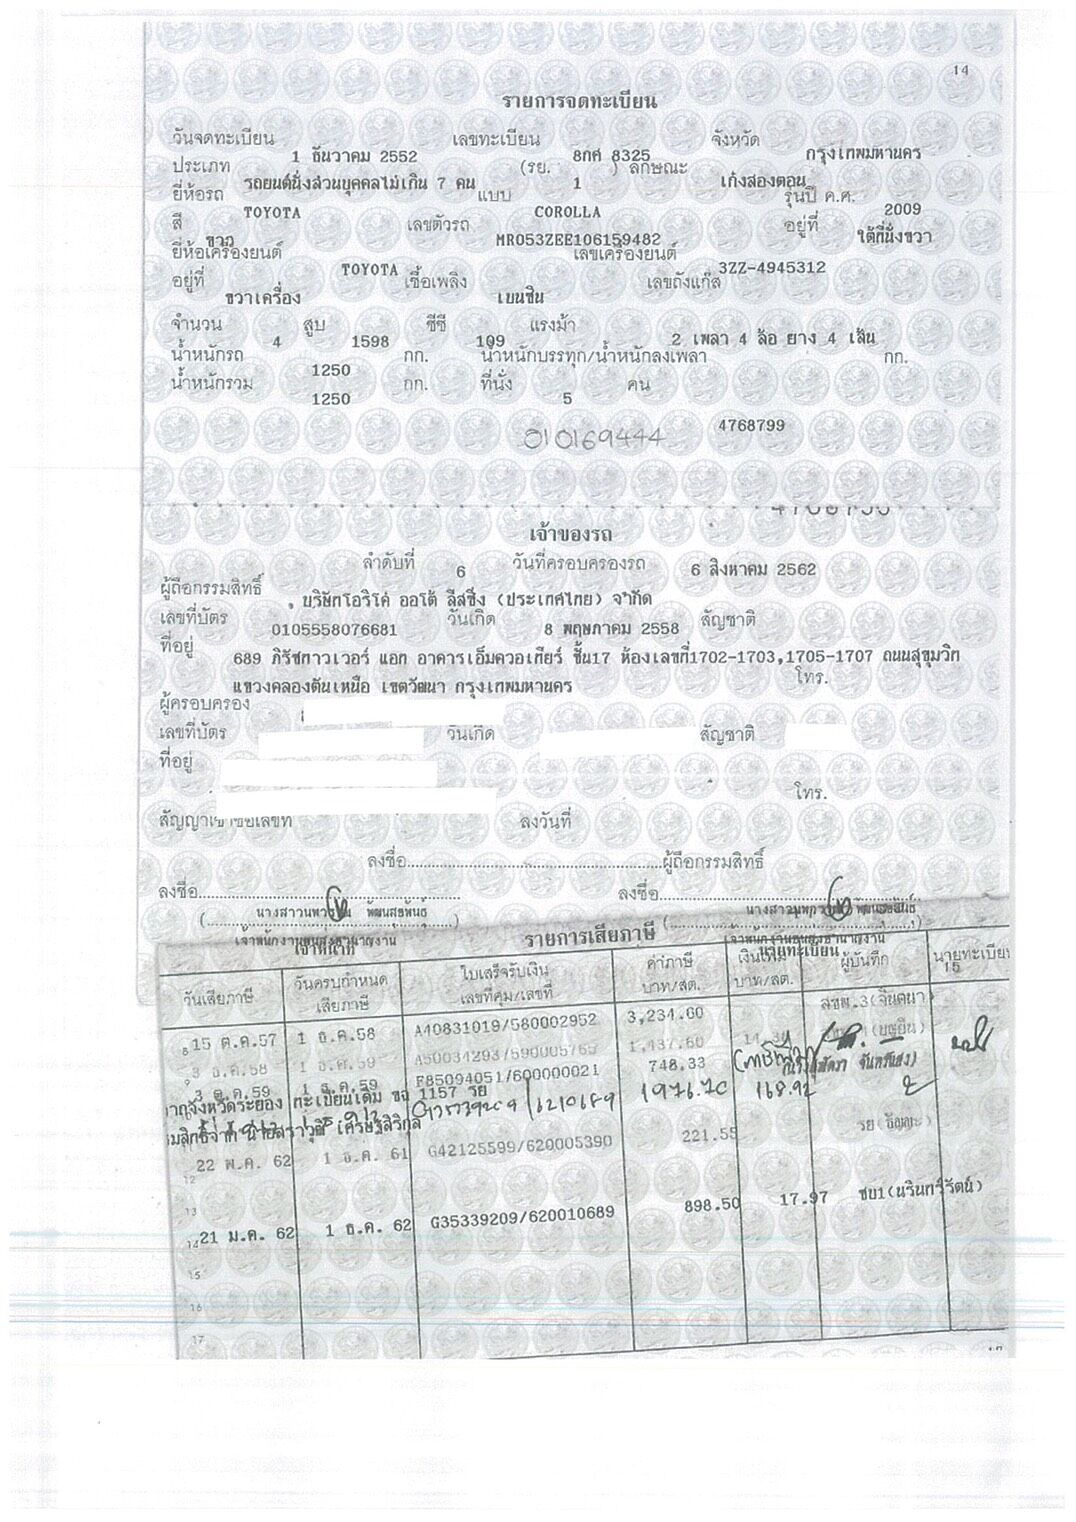 14
รายการจดทะเบียน
วันจดทะเบียน 1 ธันวาคม 2552 เลขทะเบียน 8กศ 8325 จังหวัด กรุงเทพมหานคร
ประเภท รถยนต์นั่งส่วนบุคคลไม่เกิน 7 คน (รย. 1 ) ลักษณะ เก๋งสองตอน
ยี่ห้อรถ TOYOTA แบบ COROLLA รุ่นปี ค.ศ. 2009
สี ขาว เลขตัวรถ MR053ZEE106159482 อยู่ที่ ใต้ที่นั่งขวา
ยี่ห้อเครื่องยนต์ TOYOTA เลขเครื่องยนต์ 3ZZ-4945312
อยู่ที่ ขวาเครื่อง เชื้อเพลิง เบนซิน เลขถังแก๊ส
จำนวน 4 สูบ 1598 ซีซี 109 แรงม้า 2 เพลา 4 ล้อ ยาง 4 เส้น
น้ำหนักรถ 1250 กก. น้ำหนักบรรทุก/น้ำหนักลงเพลา กก.
น้ำหนักรวม 1250 กก. ที่นั่ง 5 คน
010169444 4768799
เจ้าของรถ
ลำดับที่ 6 วันที่ครอบครองรถ 6 สิงหาคม 2562
ผู้ถือกรรมสิทธิ์ บริษัทโอริโค่ ออโต้ ลีสซิ่ง (ประเทศไทย) จำกัด
เลขที่บัตร 0105558076681 วันเกิด 8 พฤษภาคม 2558 สัญชาติ
ที่อยู่ 689 ภิรัชทาวเวอร์ แอท อาคารเอ็มควอเทียร์ ชั้น17 ห้องเลขที่1702-1703,1705-1707 ถนนสุขุมวิท
แขวงคลองตันเหนือ เขตวัฒนา กรุงเทพมหานคร โทร.
ผู้ครอบครอง
เลขที่บัตร วันเกิด สัญชาติ
ที่อยู่
โทร.
สัญญาเช่าซื้อเลขที่ ลงวันที่
ลงชื่อ ผู้ถือกรรมสิทธิ์
ลงชื่อ ลงชื่อ
พัฒนสุขพันธุ์
รายการเสียภาษี
15
วันเสียภาษี วันครบกำหนดเสียภาษี ใบเสร็จรับเงิน เลขที่คุม/เลขที่ ค่าภาษี บาท/สต. เงินเพิ่ม บาท/สต. ผู้บันทึก นายทะเบียน
8 15 ต.ค.57 1 ธ.ค.58 A40831019/580002952 3,234.60 ลชพ.3(จินตนา)
9 3 ธ.ค.58 1 ธ.ค.59 A50034293/590005765 1,437.60
3 ต.ค.59 1 ธ.ค.59 F85094051/600000021 748.33
ทะเบียนเดิม ขฉ 1157 รย 1976.70 168.92
12 22 พ.ค. 62 1 ธ.ค. 61 G42125599/620005390 221.55 รย(ธัญญะ)
13
14 21 ม.ค. 62 1 ธ.ค. 62 G35339209/620010689 898.50 17.97 ชบ1(นรินทร์รัตน์)
15
16
17